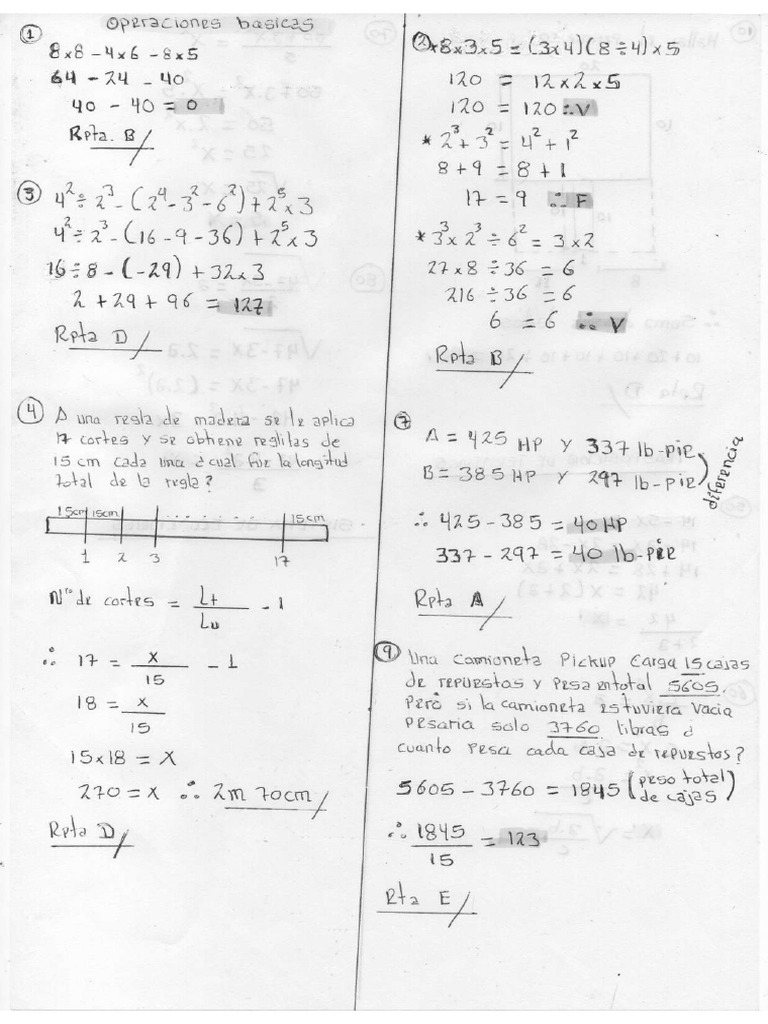 Operaciones basicas
①
8x8 - 4x6 - 8x5
64 - 24 - 40
40 - 40 = 0
Rpta. B
③ 4² ÷ 2³ - (2⁴ - 3² - 6²) + 2⁵ x 3
4² ÷ 2³ - (16 - 9 - 36) + 2⁵ x 3
16 ÷ 8 - (-29) + 32 x 3
2 + 29 + 96 = 127
Rpta D
④ A una regla de madera se le aplica
17 cortes y se obtiene reglitas de
15 cm cada una ¿cual fue la longitud
total de la regla?
15cm 15cm . . . . . . 15cm
1 2 3 17
Nro de cortes = Lt / Lu - 1
∴ 17 = x / 15 - 1
18 = x / 15
15x18 = x
270 = x ∴ 2m 70cm
Rpta D
② * 8x3x5 = (3x4)(8÷4)x5
120 = 12x2x5
120 = 120 ∴ V
* 2³ + 3² = 4² + 1²
8 + 9 = 8 + 1
17 = 9 ∴ F
* 3³ x 2³ ÷ 6² = 3x2
27 x 8 ÷ 36 = 6
216 ÷ 36 = 6
6 = 6 ∴ V
Rpta B
⑦
A = 425 HP y 337 lb-pie
B = 385 HP y 297 lb-pie
diferencia
∴ 425 - 385 = 40 HP
337 - 297 = 40 lb-pie
Rpta A
⑨ Una camioneta Pickup carga 15 cajas
de repuestos y pesa en total 5605.
Pero si la camioneta estuviera vacia
pesaria solo 3760 libras ¿
cuanto pesa cada caja de repuestos?
5605 - 3760 = 1845 (peso total
de cajas)
∴ 1845 / 15 = 123
Rta E